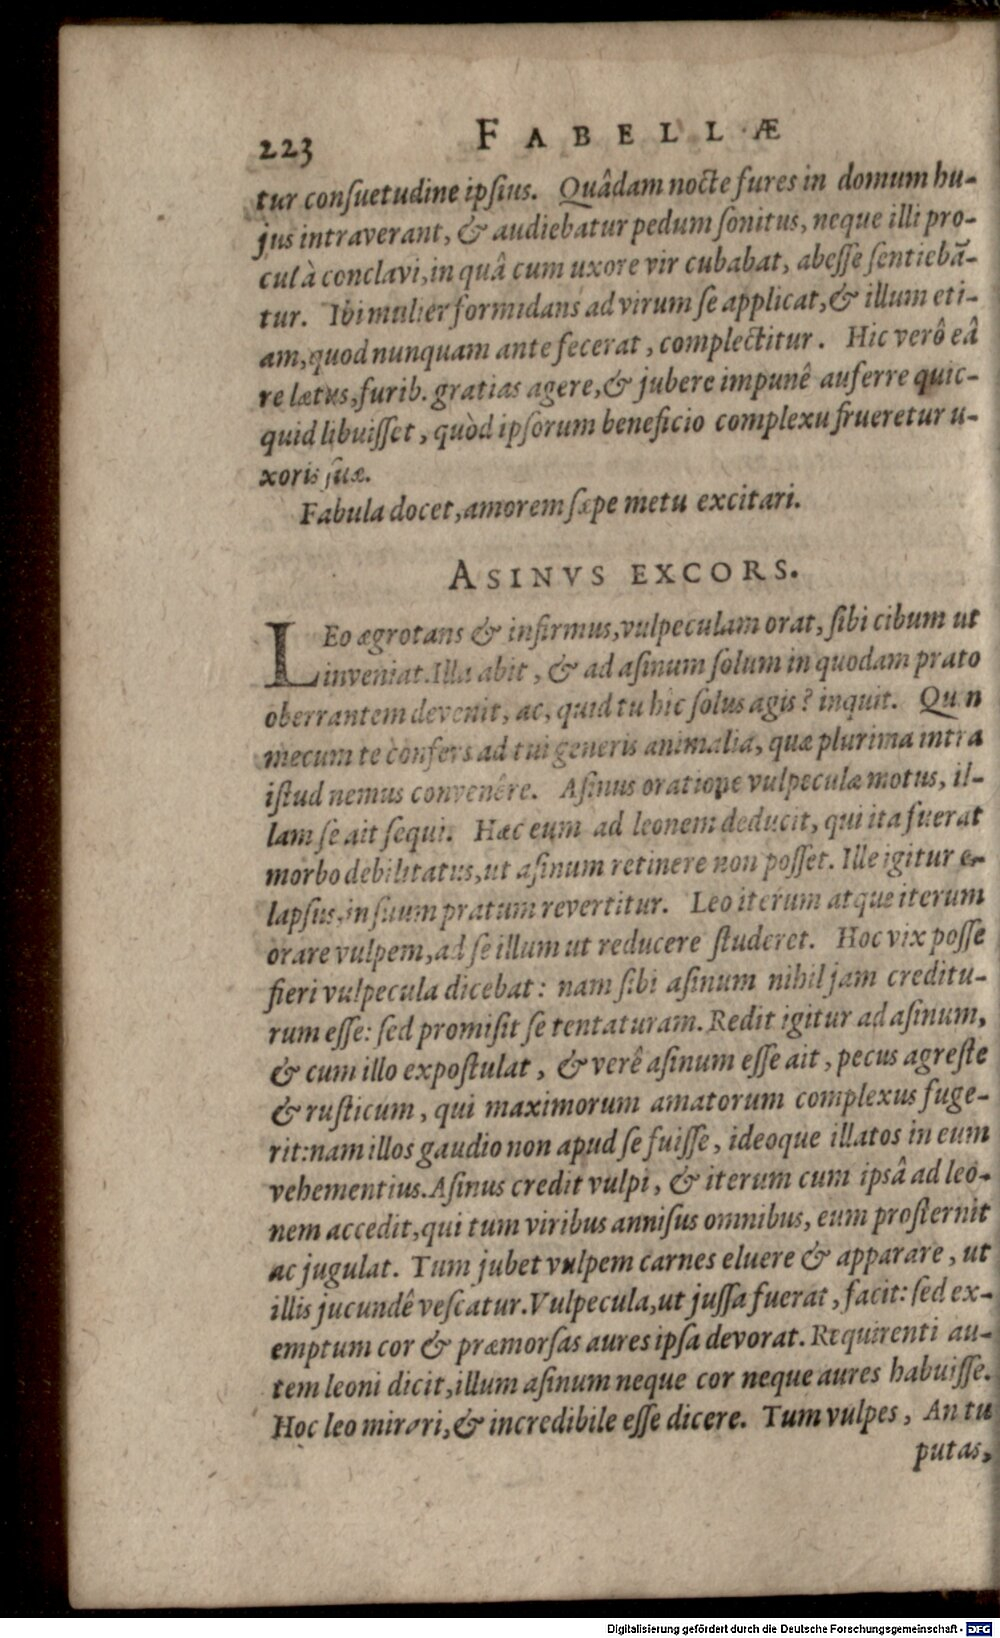 223 FABELLÆ
tur conſuetudine ipſius. Quâdam nocte fures in domum hu-
jus intraverant, & audiebatur pedum ſonitus, neque illi pro-
cul à conclavi, in quâ cum uxore vir cubabat, abeſſe ſentiebā-
tur. Ibi mulier formidans ad virum ſe applicat, & illum eti-
am, quod nunquam ante fecerat, complectitur. Hic verô eâ
re lætus, furib. gratias agere, & jubere impunê auferre quic-
quid libuiſſet, quòd ipſorum beneficio complexu frueretur u-
xoris ſuæ.
Fabula docet, amorem ſæpe metu excitari.
ASINVS EXCORS.
LEo ægrotans & infirmus, vulpeculam orat, ſibi cibum ut
inveniat. Illa abit, & ad aſinum ſolum in quodam prato
oberrantem devenit, ac, quid tu hic ſolus agis? inquit. Qu n
mecum te confers ad tui generis animalia, quæ plurima intra
iſtud nemus convenêre. Aſinus oratione vulpeculæ motus, il-
lam ſe ait ſequi. Hæc eum ad leonem deducit, qui ita fuerat
morbo debilitatus, ut aſinum retinere non poſſet. Ille igitur e-
lapſus, in ſuum pratum revertitur. Leo iterum atque iterum
orare vulpem, ad ſe illum ut reducere ſtuderet. Hoc vix poſſe
fieri vulpecula dicebat: nam ſibi aſinum nihil jam creditu-
rum eſſe: ſed promiſit ſe tentaturam. Redit igitur ad aſinum,
& cum illo expoſtulat, & verê aſinum eſſe ait, pecus agreſte
& ruſticum, qui maximorum amatorum complexus fuge-
rit: nam illos gaudio non apud ſe fuiſſe, ideoque illatos in eum
vehementius. Aſinus credit vulpi, & iterum cum ipsâ ad leo-
nem accedit, qui tum viribus anniſus omnibus, eum proſternit
ac jugulat. Tum jubet vulpem carnes eluere & apparare, ut
illis jucundê veſcatur. Vulpecula, ut juſſa fuerat, facit: ſed ex-
emptum cor & præmorſas aures ipſa devorat. Requirenti au-
tem leoni dicit, illum aſinum neque cor neque aures habuiſſe.
Hoc leo mirari, & incredibile eſſe dicere. Tum vulpes, An tu
putas,
Digitalisierung gefördert durch die Deutsche Forschungsgemeinschaft - DFG